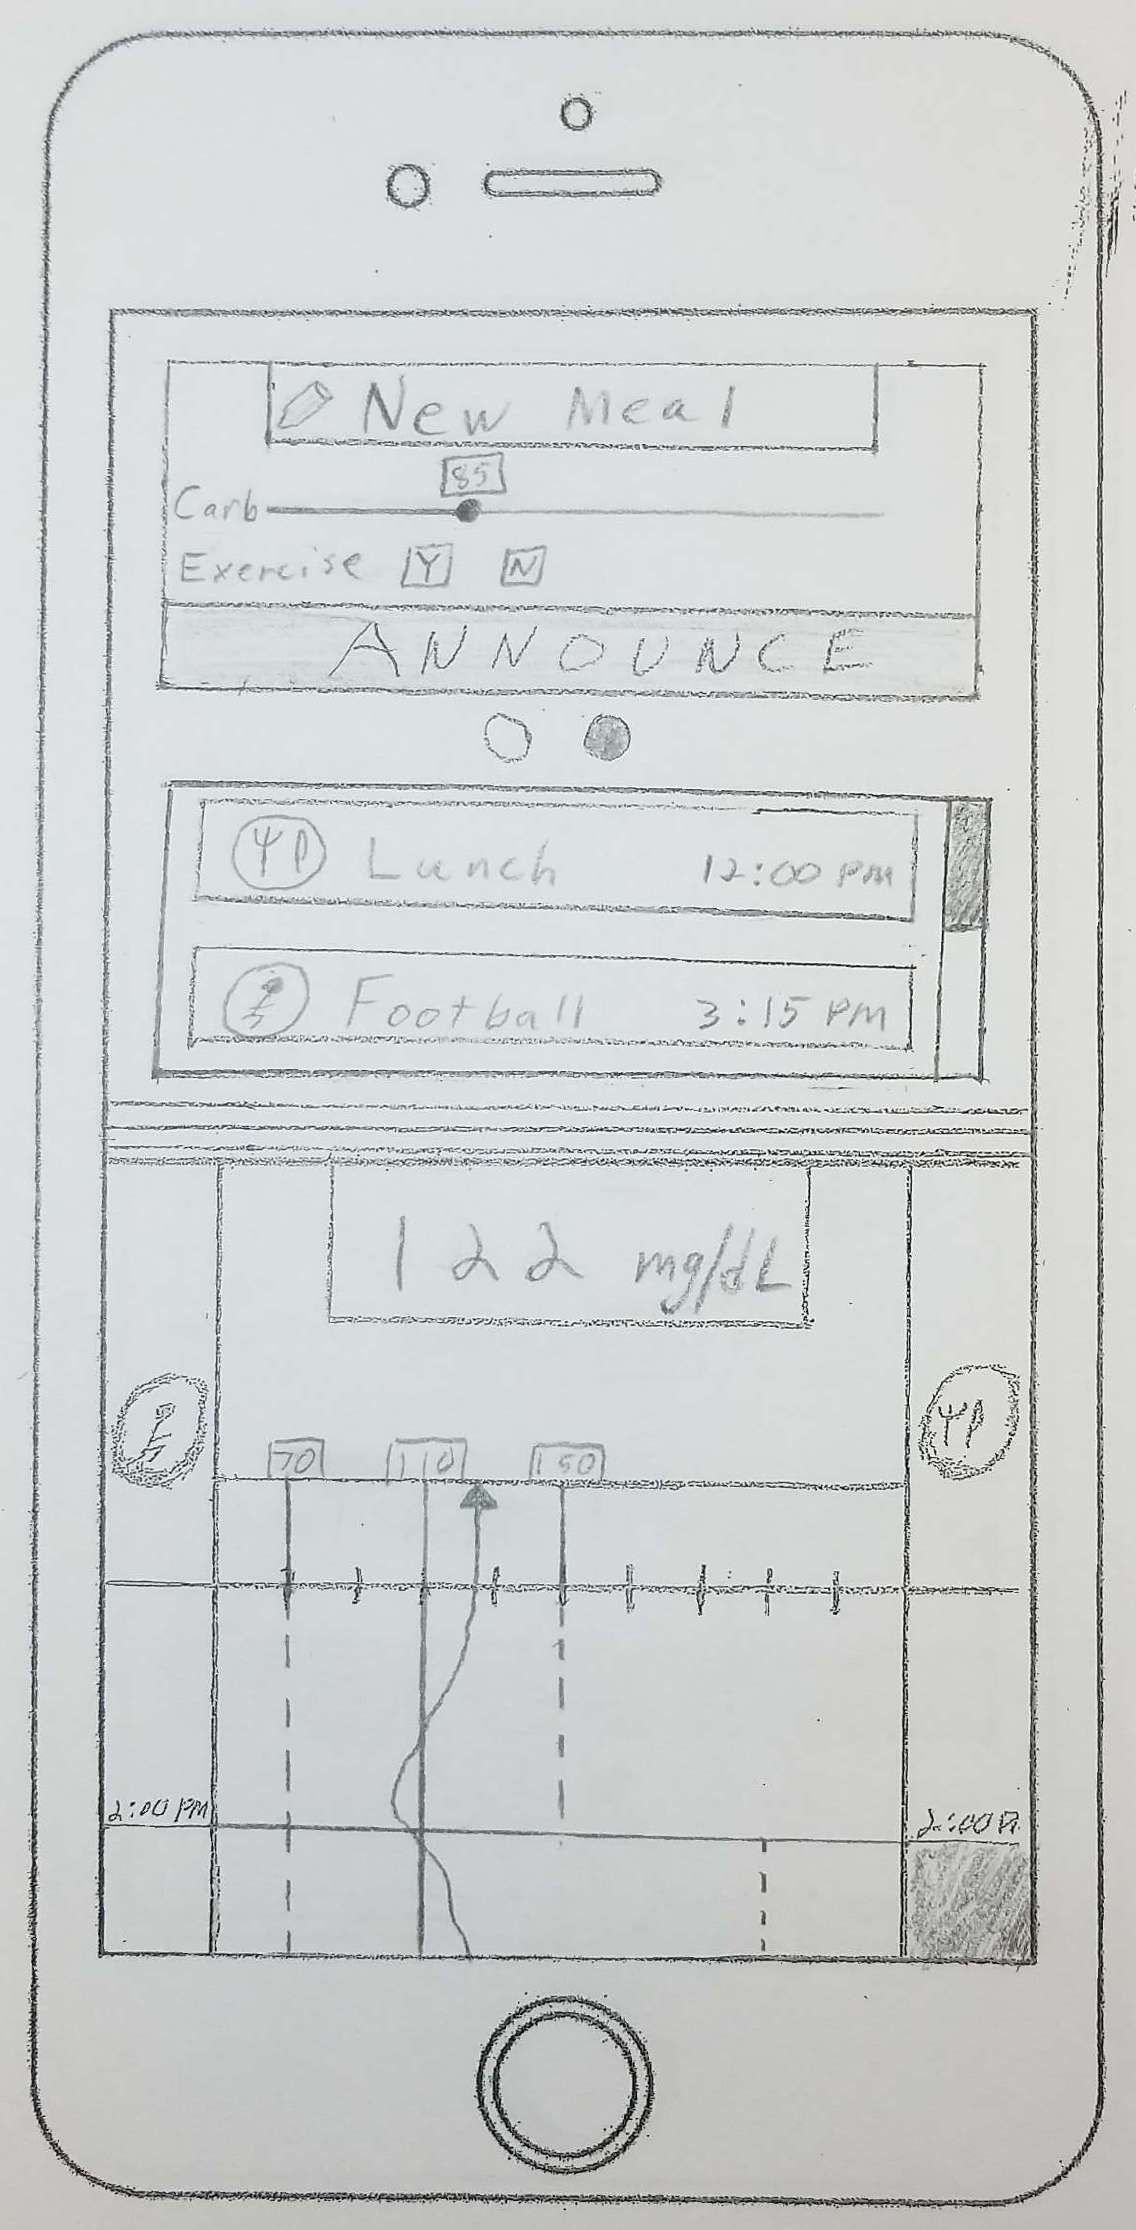 New Meal
85
Carb
Exercise Y N
ANNOUNCE
Lunch 12:00 PM
Football 3:15 PM
122 mg/dL
70 110 150
2:00 PM 2:00 P